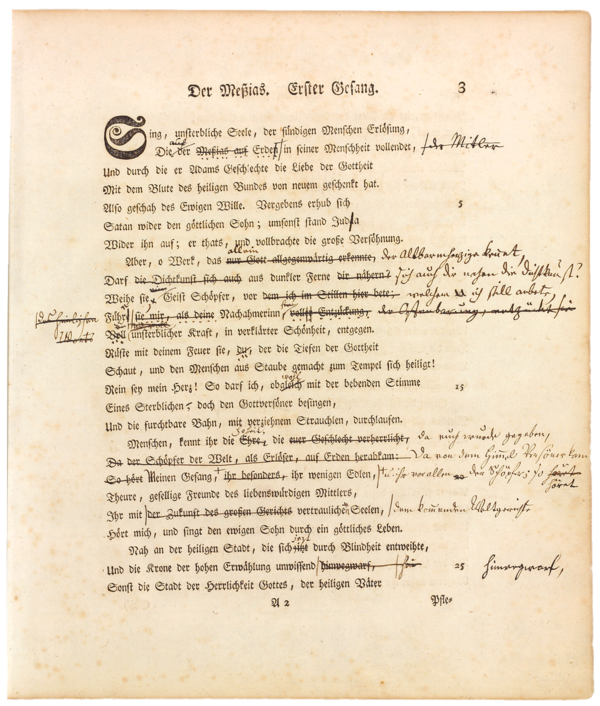 Der Meßias. Erster Gesang. 3
Sing, unsterbliche Seele, der sündigen Menschen Erlösung,
auf
Die der Meßias auf Erden in seiner Menschheit vollendet, der Mitler
Und durch die er Adams Geschlechte die Liebe der Gottheit
Mit dem Blute des heiligen Bundes von neuem geschenkt hat.
Also geschah des Ewigen Wille. Vergebens erhub sich 5
Satan wider den göttlichen Sohn; umsonst stand Judäa
Wider ihn auf; er thats, und vollbrachte die große Versöhnung.
allein
Aber, o Werk, das nur Gott allgegenwärtig erkennt, der Allbarmherzige kennet
Darf die Dichtkunst sich auch aus dunkler Ferne dir nähern? sich auch die nahen die Dichtkunst?
Weihe sie, Geist Schöpfer, vor dem ich im Stillen hier bete; welchem ich still anbete,
Führ sie mir, als deine Nachahmerinn, voller Entzückung,
Voll unsterblicher Kraft, in verklärter Schönheit, entgegen.
Rüste mit deinem Feuer sie, du, der die Tiefen der Gottheit
Schaut, und den Menschen aus Staube gemacht zum Tempel sich heiligt!
Rein sey mein Herz! So darf ich, obgleich mit der bebenden Stimme 15
wol
Eines Sterblichen, doch den Gottversöner besingen,
Und die furchtbare Bahn, mit verziehnem Strauchlen, durchlaufen.
Menschen, kennt ihr die Ehre, die euer Geschlecht verherrlicht, da euch wurde gegeben,
Hoheit,
Da der Schöpfer der Welt, als Erlöser, auf Erden herabkam: Da von dem Himel
So hört Meinen Gesang, ihr besonders, ihr wenigen Edlen, u ihr vor allen
höret
Theure, gesellige Freunde des liebenswürdigen Mittlers,
Ihr mit der Zukunft des großen Gerichts vertrauliche Seelen, dem komenden Weltgerichte
Hört mich, und singt den ewigen Sohn durch ein göttliches Leben.
Nah an der heiligen Stadt, die sich itzt durch Blindheit entweihte,
jezt
Und die Krone der hohen Erwählung unwissend hinwegwarf, 25 hinwegwarf,
Sonst die Stadt der Herrlichkeit Gottes, der heiligen Väter
A 2 Pfle-